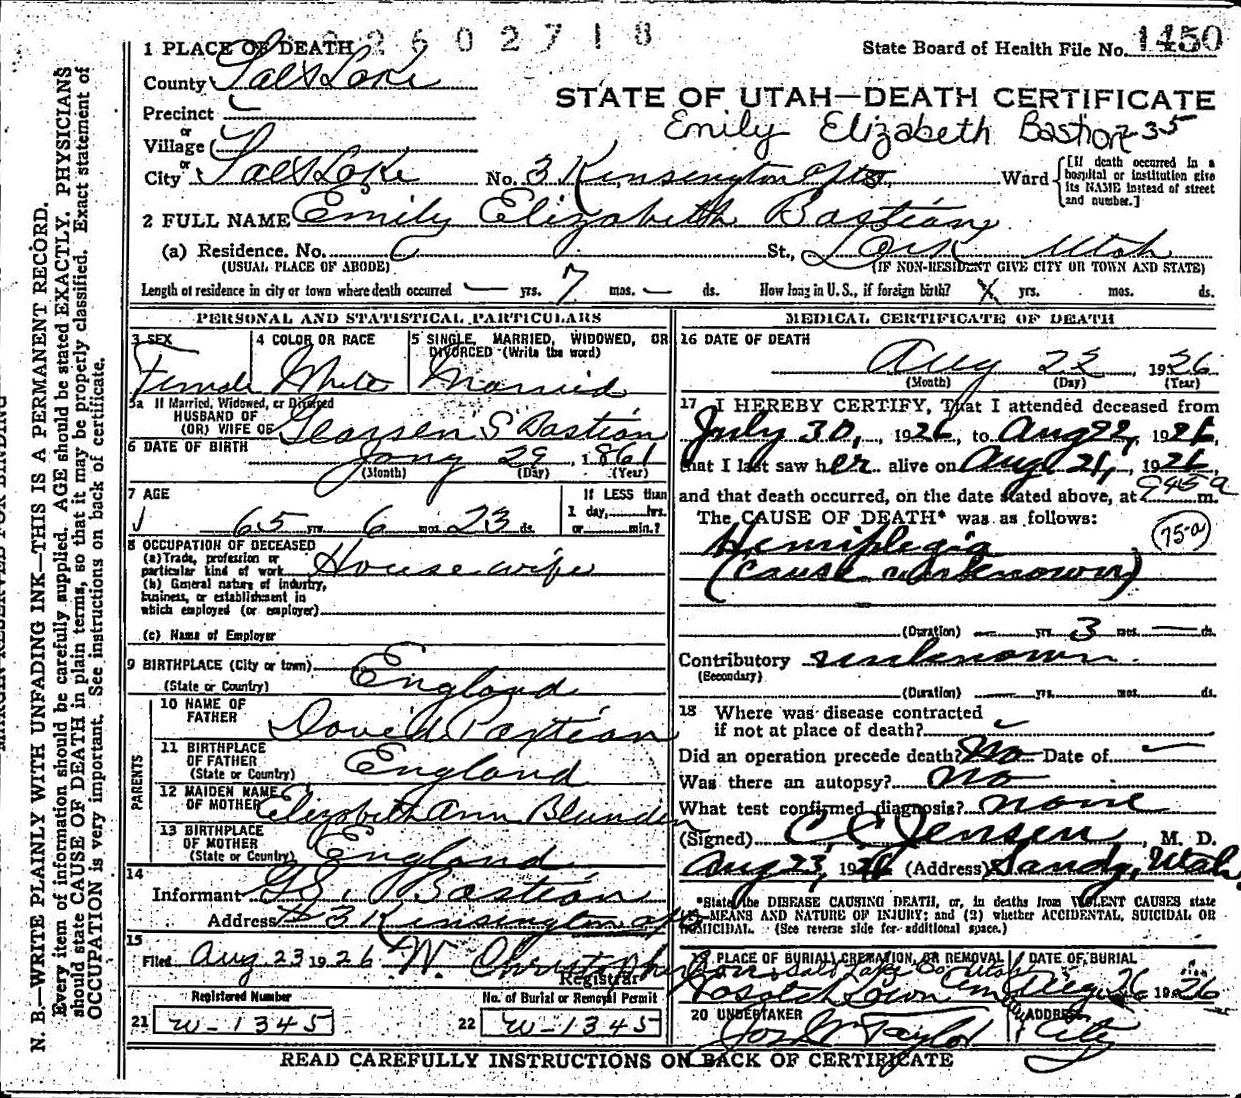 2602718
State Board of Health File No. 1450
1 PLACE OF DEATH
County Salt Lake
STATE OF UTAH—DEATH CERTIFICATE
Precinct
Emily Elizabeth Bastion 235
or
Village
or
City Salt Lake No. 3 Kensington Apts St., Ward
[If death occurred in a
hospital or institution give
its NAME instead of street
and number.]
2 FULL NAME Emily Elizabeth Bastian
(a) Residence. No. St., Utah
(USUAL PLACE OF ABODE) (IF NON-RESIDENT GIVE CITY OR TOWN AND STATE)
Length of residence in city or town where death occurred — yrs. 7 mos. — ds. How long in U. S., if foreign birth? X yrs. mos. ds.
PERSONAL AND STATISTICAL PARTICULARS
3 SEX 4 COLOR OR RACE 5 SINGLE, MARRIED, WIDOWED, OR
DIVORCED (Write the word)
Female White Married
5a If Married, Widowed, or Divorced
HUSBAND OF
(OR) WIFE OF S Bastian
6 DATE OF BIRTH
Jany 29, 1861
(Month) (Day) (Year)
7 AGE If LESS than
1 day, hrs.
65 yrs. 6 mos. 23 ds. or min.?
8 OCCUPATION OF DECEASED
(a) Trade, profession or
particular kind of work Housewife
(b) General nature of industry,
business, or establishment in
which employed (or employer)
(c) Name of Employer
9 BIRTHPLACE (City or town)
(State or Country) England
PARENTS
10 NAME OF
FATHER David Paxtian
11 BIRTHPLACE
OF FATHER
(State or Country) England
12 MAIDEN NAME
OF MOTHER Elizabeth Ann Blunden
13 BIRTHPLACE
OF MOTHER
(State or Country) England
14
Informant G.S. Bastian
Address # 3 Kensington apts
15
Filed Aug 23 1926 W. Christopherson
Registrar
Registered Number No. of Burial or Removal Permit
21 W-1345 22 W-1345
MEDICAL CERTIFICATE OF DEATH
16 DATE OF DEATH
Aug 22, 1926
(Month) (Day) (Year)
17 I HEREBY CERTIFY, That I attended deceased from
July 30, 1926, to Aug 22, 1926,
that I last saw her alive on Aug 21, 1926,
and that death occurred, on the date stated above, at 945 a m.
The CAUSE OF DEATH* was as follows:
Hemiplegia 75-a
(cause unknown)
(Duration) — yrs. 3 mos. — ds.
Contributory unknown
(Secondary)
(Duration) yrs. mos. ds.
18 Where was disease contracted
if not at place of death?
Did an operation precede death? No Date of —
Was there an autopsy? no
What test confirmed diagnosis? none
(Signed) C C Jensen, M. D.
Aug 23, 1926 (Address) Sandy, Utah
*State the DISEASE CAUSING DEATH, or, in deaths from VIOLENT CAUSES state
MEANS AND NATURE OF INJURY; and (2) whether ACCIDENTAL, SUICIDAL OR
HOMICIDAL. (See reverse side for additional space.)
19 PLACE OF BURIAL, CREMATION, OR REMOVAL DATE OF BURIAL
Salt Lake Co Utah
Wasatch Lawn Cem Aug 26 1926
20 UNDERTAKER ADDRESS
Jos Wm Taylor City
READ CAREFULLY INSTRUCTIONS ON BACK OF CERTIFICATE
N. B.—WRITE PLAINLY WITH UNFADING INK—THIS IS A PERMANENT RECORD.
Every item of information should be carefully supplied. AGE should be stated EXACTLY. PHYSICIANS
should state CAUSE OF DEATH in plain terms, so that it may be properly classified. Exact statement of
OCCUPATION is very important. See instructions on back of certificate.